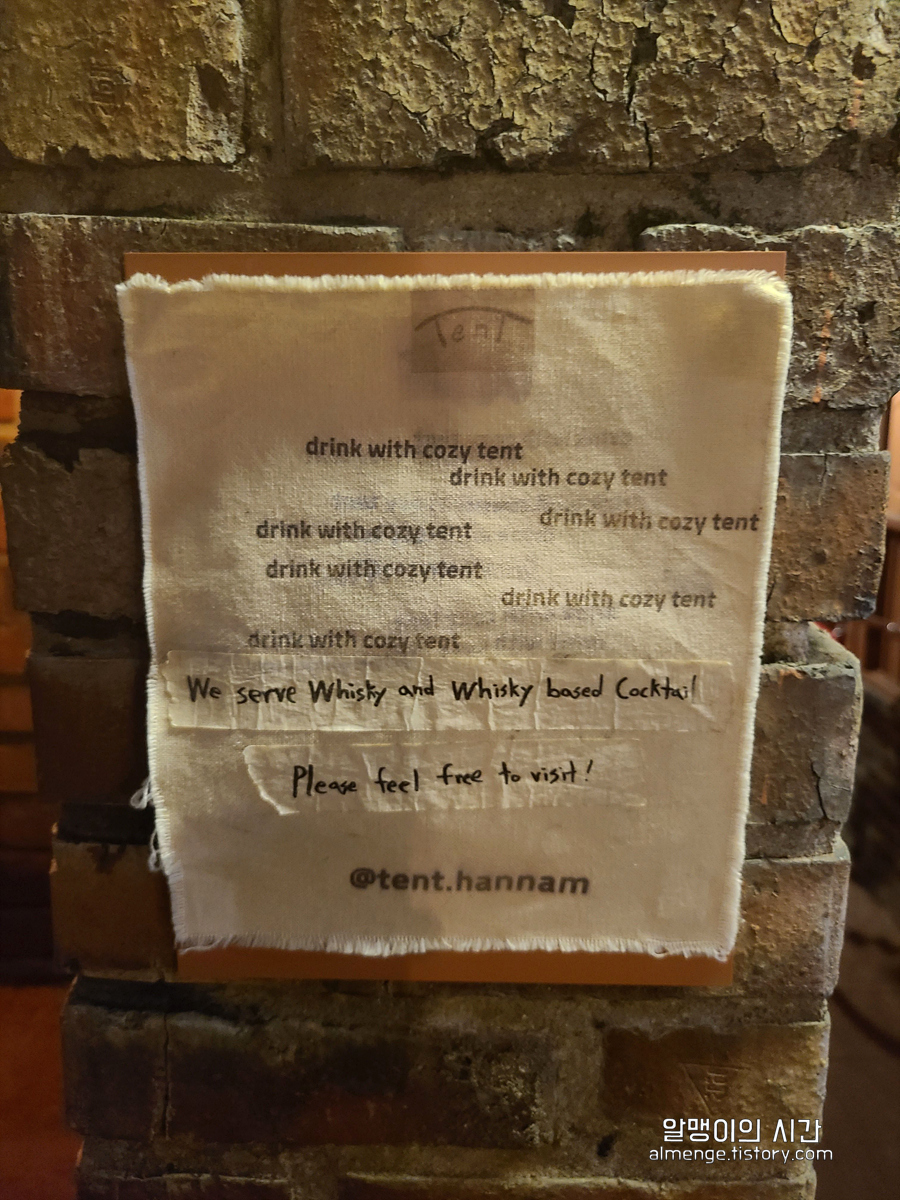 Tent
drink with cozy tent
drink with cozy tent
drink with cozy tent
drink with cozy tent
drink with cozy tent
drink with cozy tent
drink with cozy tent
We serve Whisky and Whisky based Cocktail
Please feel free to visit!
@tent.hannam
알맹이의 시간
almenge.tistory.com